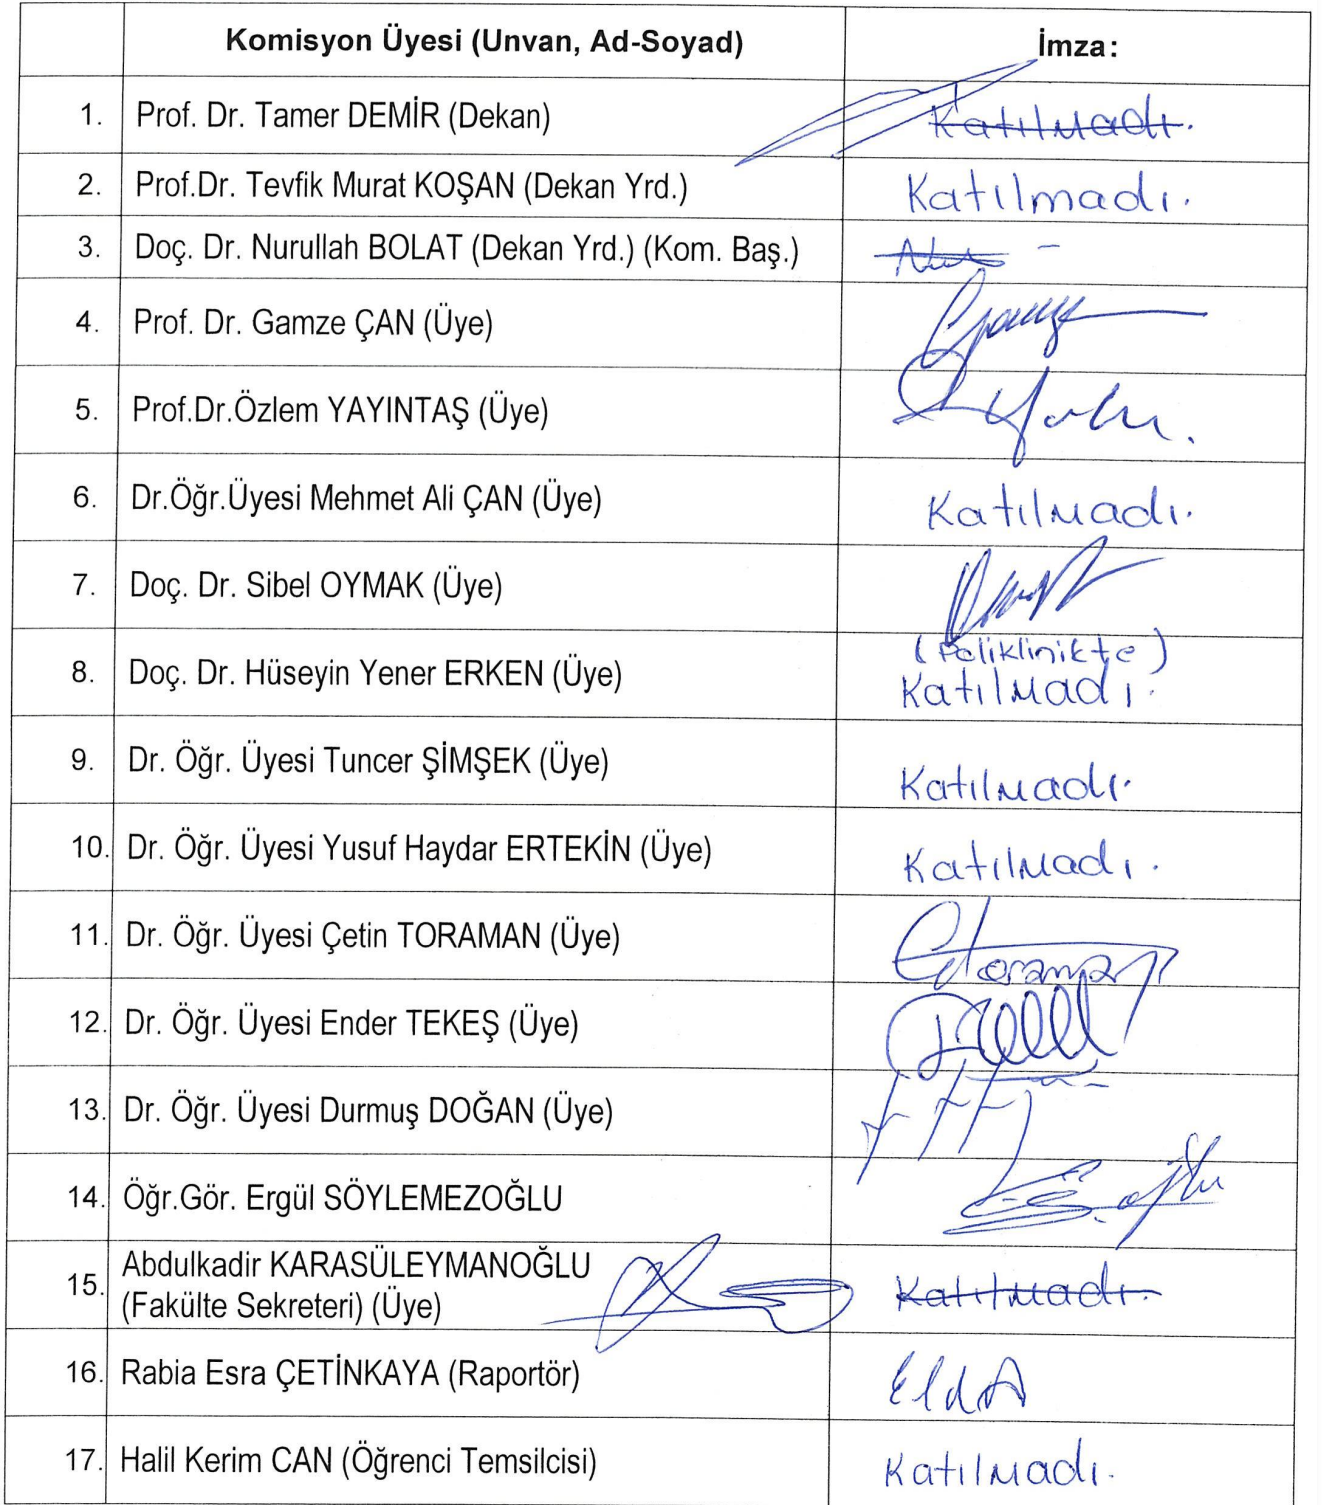 Komisyon Üyesi (Unvan, Ad-Soyad) İmza:
1. Prof. Dr. Tamer DEMİR (Dekan) Katılmadı.
2. Prof.Dr. Tevfik Murat KOŞAN (Dekan Yrd.) Katılmadı.
3. Doç. Dr. Nurullah BOLAT (Dekan Yrd.) (Kom. Baş.)
4. Prof. Dr. Gamze ÇAN (Üye)
5. Prof.Dr.Özlem YAYINTAŞ (Üye)
6. Dr.Öğr.Üyesi Mehmet Ali ÇAN (Üye) Katılmadı.
7. Doç. Dr. Sibel OYMAK (Üye)
(Poliklinikte)
8. Doç. Dr. Hüseyin Yener ERKEN (Üye) Katılmadı.
9. Dr. Öğr. Üyesi Tuncer ŞİMŞEK (Üye) Katılmadı.
10. Dr. Öğr. Üyesi Yusuf Haydar ERTEKİN (Üye) Katılmadı.
11. Dr. Öğr. Üyesi Çetin TORAMAN (Üye)
12. Dr. Öğr. Üyesi Ender TEKEŞ (Üye)
13. Dr. Öğr. Üyesi Durmuş DOĞAN (Üye)
14. Öğr.Gör. Ergül SÖYLEMEZOĞLU
15. Abdulkadir KARASÜLEYMANOĞLU
(Fakülte Sekreteri) (Üye) Katılmadı.
16. Rabia Esra ÇETİNKAYA (Raportör)
17. Halil Kerim CAN (Öğrenci Temsilcisi) Katılmadı.